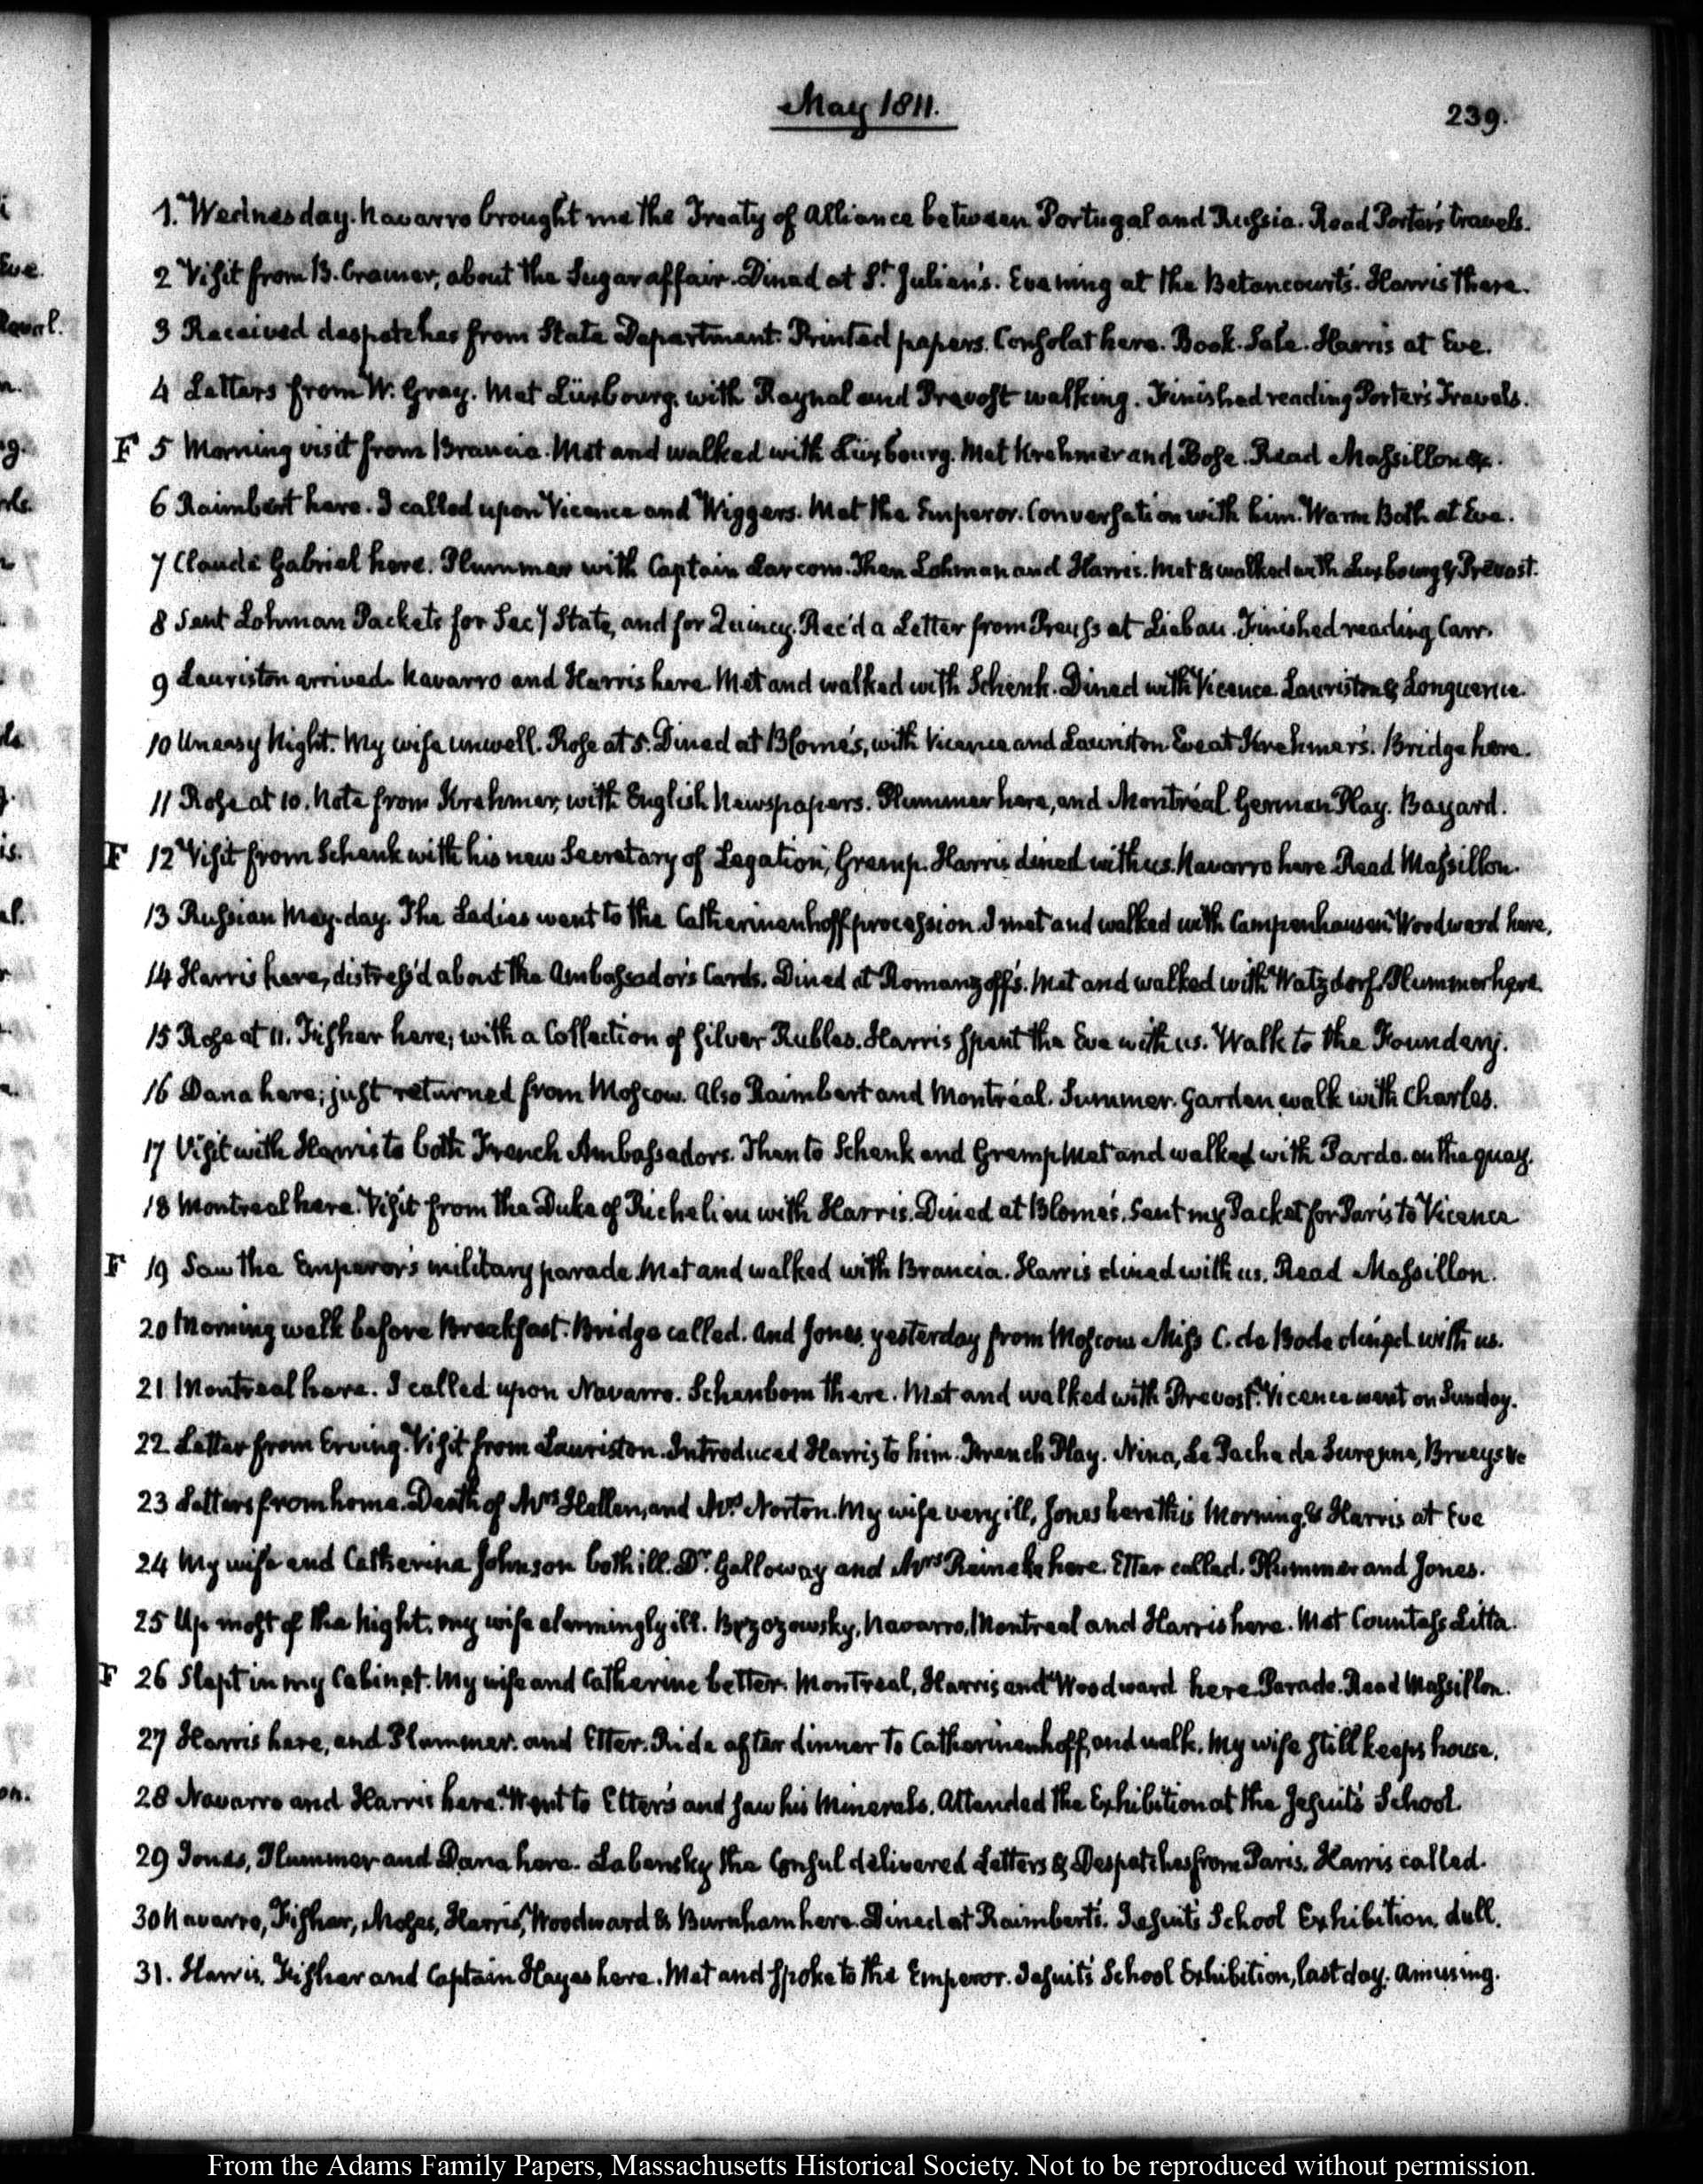 May 1811.
239.
1. Wednesday. Navarro brought me the Treaty of Alliance between Portugal and Russia. Read Porter's travels.
2 Visit from B. Cramer, about the Sugar affair. Dined at St. Julien's. Evening at the Betancourts'. Harris there.
3 Received despatches from State Department. Printed papers. Consolat here. Book-Sale. Harris at Eve.
4 Letters from W. Gray. Met Lüxbourg, with Raynal and Prevost walking. Finished reading Porter's Travels.
F 5 Morning visit from Brancia. Met and walked with Lüxbourg. Met Krehmer and Bose. Read Massillon &c.
6 Raimbert here. I called upon Vicence and Wiggers. Met the Emperor. Conversation with him. Warm Bath at Eve.
7 Claude Gabriel here. Plummer with Captain Larcom. Then Lohman and Harris. Met & walked with Luxbourg & Prévost.
8 Sent Lohman Packets for Secy State, and for Quincy. Rec'd a Letter from Preuss at Liebau. Finished reading Carr.
9 Lauriston arrived. Navarro and Harris here. Met and walked with Schenk. Dined with Vicence. Lauriston & Longuerue.
10 Uneasy Night. My wife unwell. Rose at 5. Dined at Blome's, with Vicence and Lauriston Eve at Krehmer's. Bridge here.
11 Rose at 10. Note from Krehmer, with English Newspapers. Plummer here, and Montréal. German Play. Bayard.
F 12 Visit from Schenk with his new Secretary of Legation, Gremp. Harris dined with us. Navarro here. Read Massillon.
13 Russian May-day. The Ladies went to the Catherinenhoff procession. I met and walked with Campenhausen. Woodward here.
14 Harris here, distress'd about the Ambassador's Cards. Dined at Romanzoff's. Met and walked with Watzdorf. Plummer here.
15 Rose at 11. Fisher here; with a Collection of silver Rubles. Harris spent the Eve with us. Walk to the Foundery.
16 Dana here; just returned from Moscow. Also Raimbert and Montréal. Summer-Garden walk with Charles.
17 Visit with Harris to both French Ambassadors. Then to Schenk and Gremp Met and walked with Pardo. on the quay.
18 Montreal here. Visit from the Duke of Richelieu with Harris. Dined at Blome's. Sent my Packet for Paris to Vicence
F 19 Saw the Emperor's military parade. Met and walked with Brancia. Harris dined with us. Read Massillon.
20 Morning walk before Breakfast. Bridge called. And Jones. yesterday from Moscow Miss C. de Bode dined with us.
21 Montreal here. I called upon Navarro. Schenbom there. Met and walked with Prevost. Vicence went on Sunday.
22 Letter from Erving. Visit from Lauriston. Introduced Harris to him. French Play. Nina, Le Pacha de Surenne, Brueys &c
23 Letters from home. Death of Mrs Hellen, and Mrs. Norton. My wife very ill, Jones here this Morning, & Harris at Eve
24 My wife and Catherine Johnson both ill. Dr. Galloway and Mrs Reineke here. Etter called. Plummer and Jones.
25 Up most of the Night. my wife alarmingly ill. Brzozowsky, Navarro, Montreal and Harris here. Met Countess Litta.
F 26 Slept in my Cabinet. My wife and Catherine better. Montreal, Harris and Woodward here. Parade. Read Massillon.
27 Harris here, and Plummer. and Etter. Ride after dinner to Catherinenhoff, and walk. My wife still keeps house.
28 Navarro and Harris here. Went to Etter's and saw his Minerals. Attended the Exhibition at the Jesuits School.
29 Jones, Plummer and Dana here. Labensky the Consul delivered Letters & Despatches from Paris. Harris called.
30 Navarro, Fisher, Moses, Harris, Woodward & Burnham here. Dined at Raimbert's. Jesuits School Exhibition. dull.
31. Harris, Fisher and Captain Hayes here. Met and spoke to the Emperor. Jesuits' School Exhibition, last day. amusing.
From the Adams Family Papers, Massachusetts Historical Society. Not to be reproduced without permission.